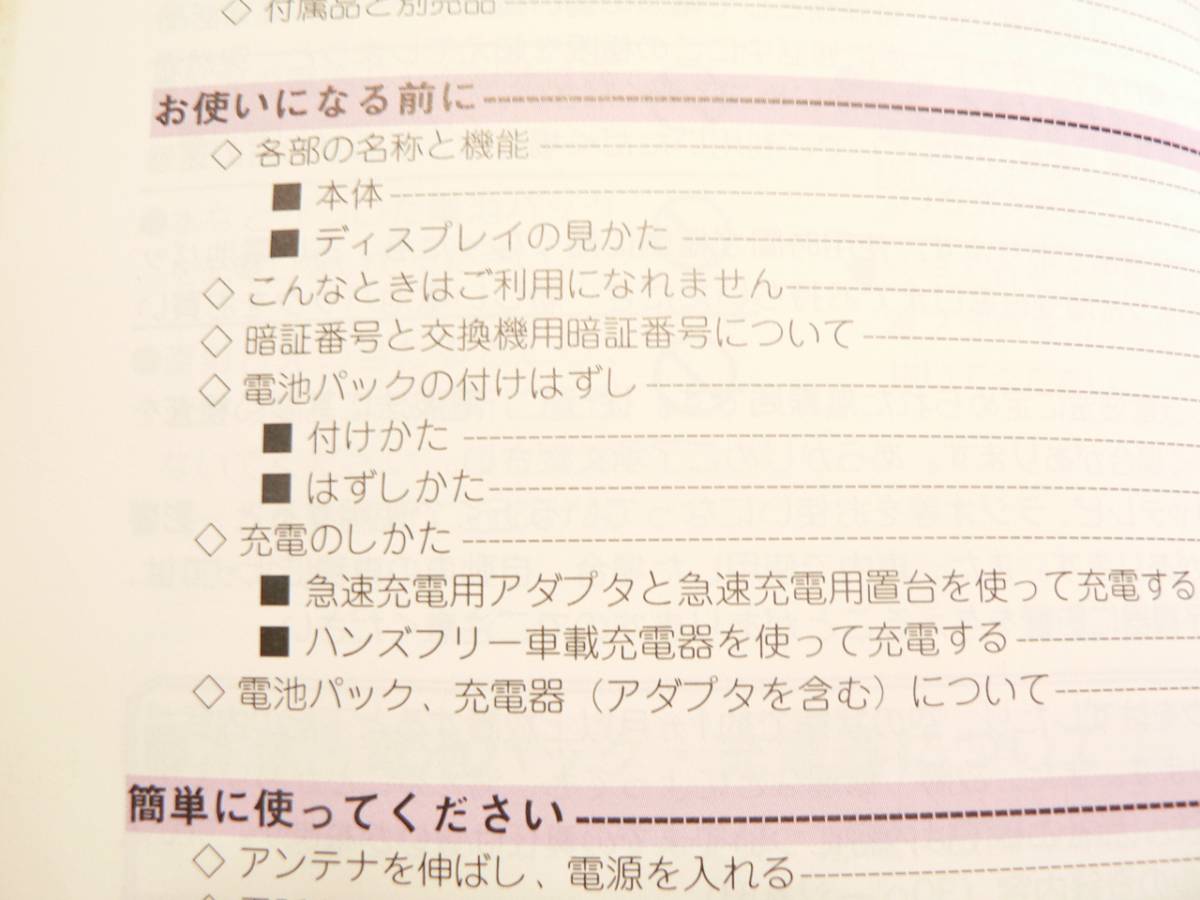 ◇ 付属品と別売品
お使いになる前に
◇ 各部の名称と機能
■ 本体
■ ディスプレイの見かた
◇ こんなときはご利用になれません
◇ 暗証番号と交換機用暗証番号について
◇ 電池パックの付けはずし
■ 付けかた
■ はずしかた
◇ 充電のしかた
■ 急速充電用アダプタと急速充電用置台を使って充電する
■ ハンズフリー車載充電器を使って充電する
◇ 電池パック、充電器（アダプタを含む）について
簡単に使ってください
◇ アンテナを伸ばし、電源を入れる